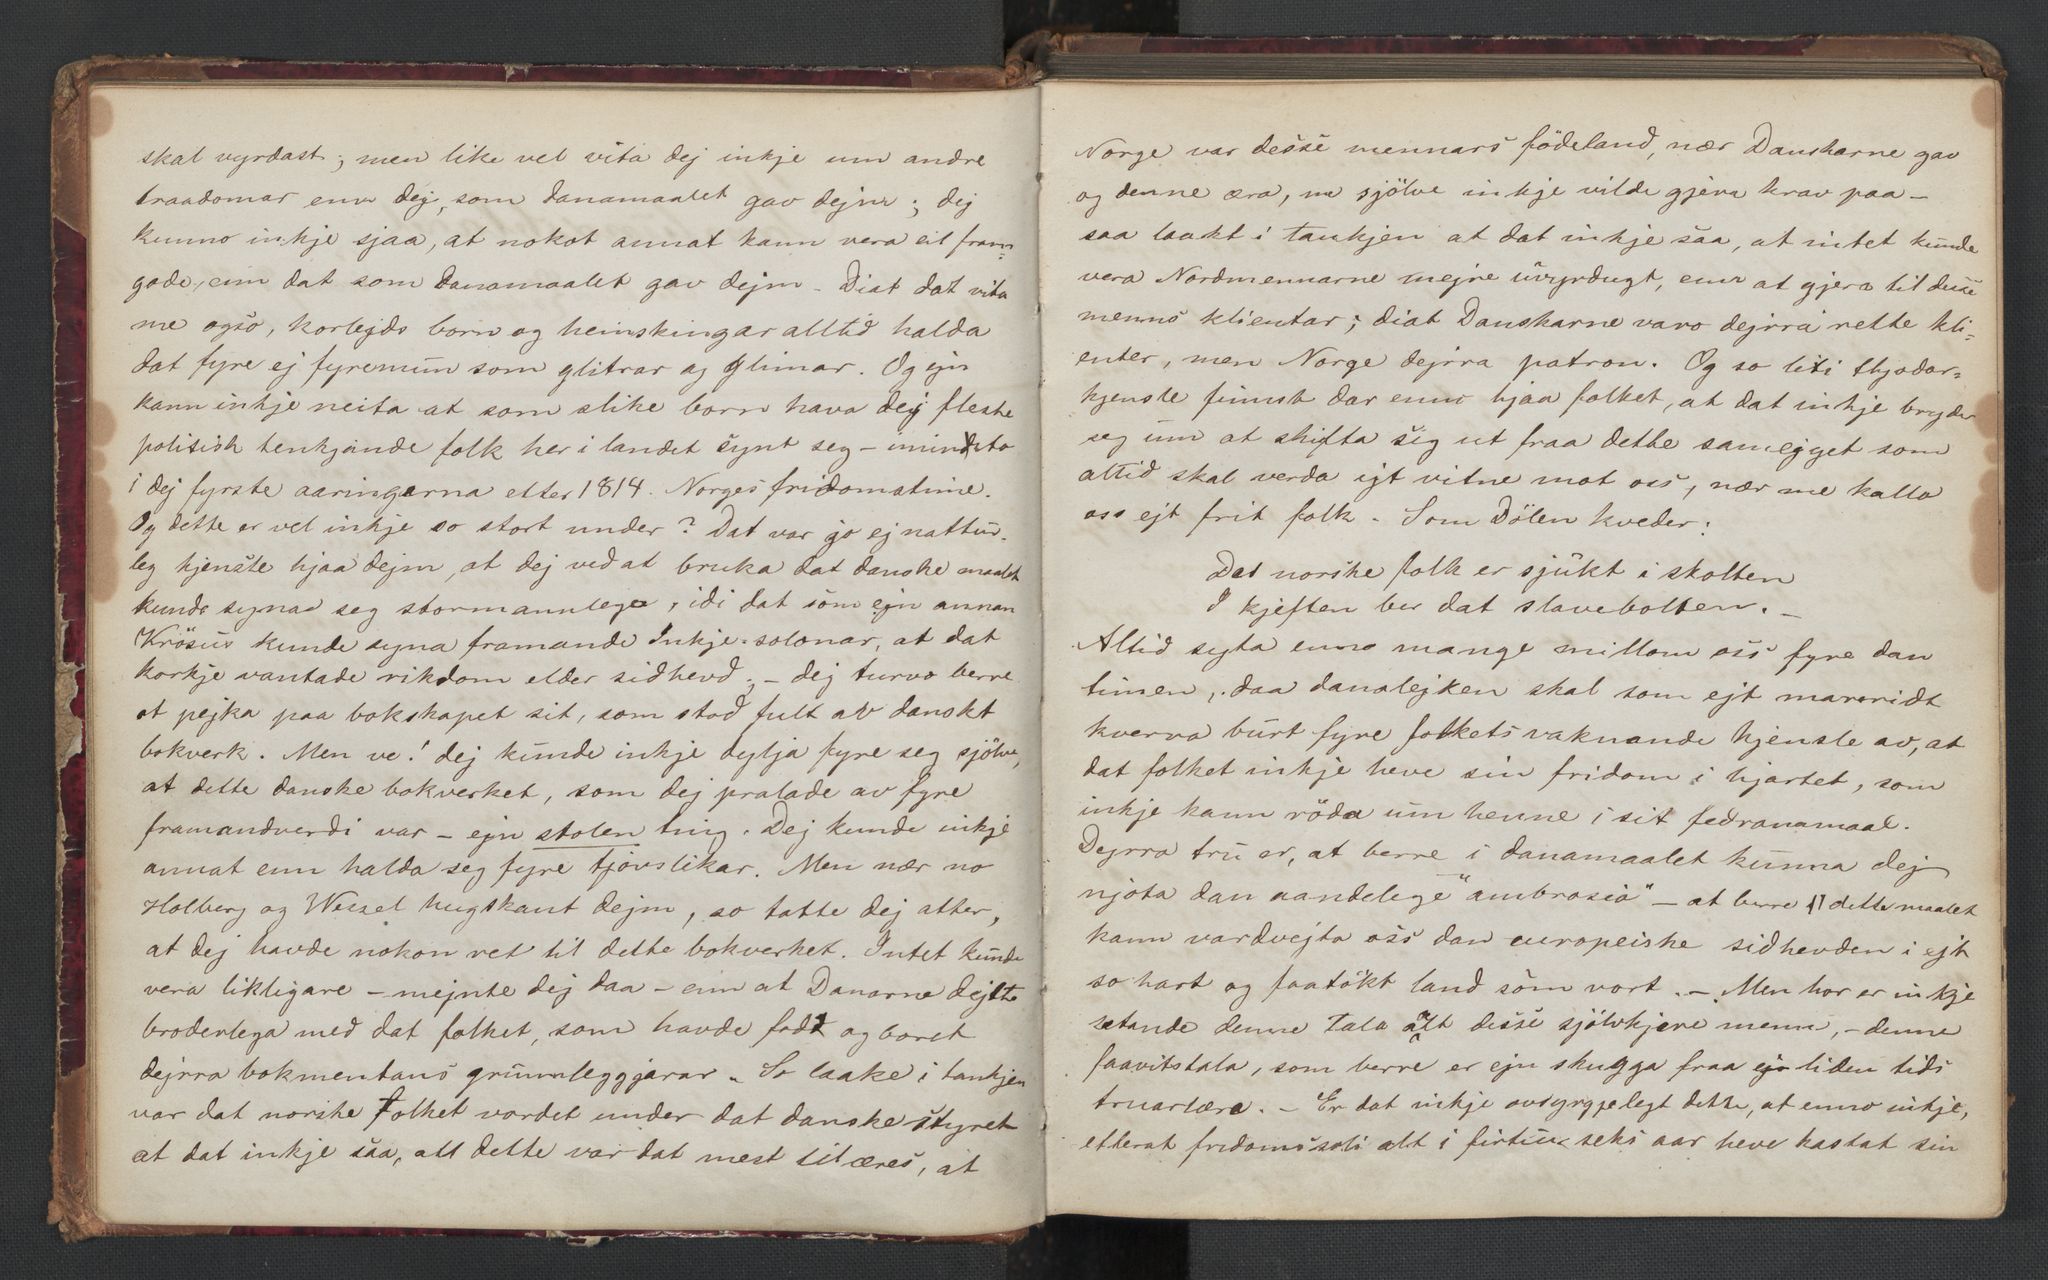 skal vyrdast; men like vel vita dej inkje um andre
traadomar enn dej, som danamaalet gav dejm; dej
kunno inkje sjaa, at nokot annat kann vera eit fram=
gode, enn dat som Danamaalet gav dejm – Diat dat vita
me ogso, korlejds born og heimskingar alltid halda
dat fyre ej fyremun som glitrar og glimar. Og ejn
kann inkje neita at som slike born hava dej fleste
politisk tenkjande folk her i landet synt seg – i mindsto
i dej fyrste aaringarna etter 1814. Norges fridomstime.
Og dette er vel inkje so stort under? Dat var jo ej nattur-
leg kjensle hjaa dejm, at dej ved at bruka dat danske maalet
kunde synas seg stormannlege, idi dat som ejn annan
Krösus kunde syna framande Inkje-solonar, at dat
korkje vantade rikdom elder sidhevd; – dej turvo berre
at pejka paa bokskapet sit, som stod fult av danskt
bokverk. Men ve! dej kunde inkje dylja fyre seg sjölve,
at dette danske bokverket, som dej pralade av fyre
framandverdi var – ejn stolen ting. Dej kunde inkje
annat enn halda seg fyre tjovslikar. Men nær no
Holberg og Wessel hugskaut dejm, so totte dej atter,
at dej havde nokon ret til dette bokverket. Intet kunde
vera likligare – mejnte dej daa – enn at Danarne dejlte
broderlega med dat folket, som havde fodt og boret
dejrra bokmentans grunnleggjarar. So laake i tankjen
var dat norske folket vordet under dat danske styret
at dat inkje saa, att dette var dat mest til æres, at
Norge var desse mennars födeland, nær Danskarne gav
og denne æra, me sjölve inkje vilde gjera krav paa –
saa laakt i tankjen at dat inkje saa, at intet kunde
vera Nordmennarne mejre uvyrdugt, enn at gjera til desse
menns klientar; diat Danskarne varo dejrra rette kli=
enter, men Norge dejrra patron. Og so liti thjodar=
kjensle finnst dar enno hjaa folket, at dat inkje bryder
seg um at skifta sig ut fraa dette samejget som
altid skal verda ejt vitne mot oss, nær me kalla
oss ejt frit folk. Som Dölen kveder:
Dat norske folk er sjukt i skolten
I kjeften ber dat slavebolten. –
Altid syta enno mange millom oss fyre dan
timen, daa danalejken skal som ejt mareridt
kverva burt fyre folkets vaknande kjensle av, at
dat folket inkje heve sin fridom i hjartet, som
inkje kann röda um henne i sit fedranamaal.
Dejrra tru er, at berre i danamaalet kunna dej
njota dan aandelege "ambrosia" – at berre dette maalet
kann vardvejta oss dan europeiske sidhevden i ejt
so hart og faatökt land som vort. – Men hor er inkje
stande denne tala alt desse sjölvkjære menn, – denne
faavitstala, som berre er ejn skugga fraa ejn liden tids
truarlæra. – Er dat inkje ovsyrgjelegt dette, at enno inkje,
etterat fridomssoli alt i firtiu seks aar heve kastat sin